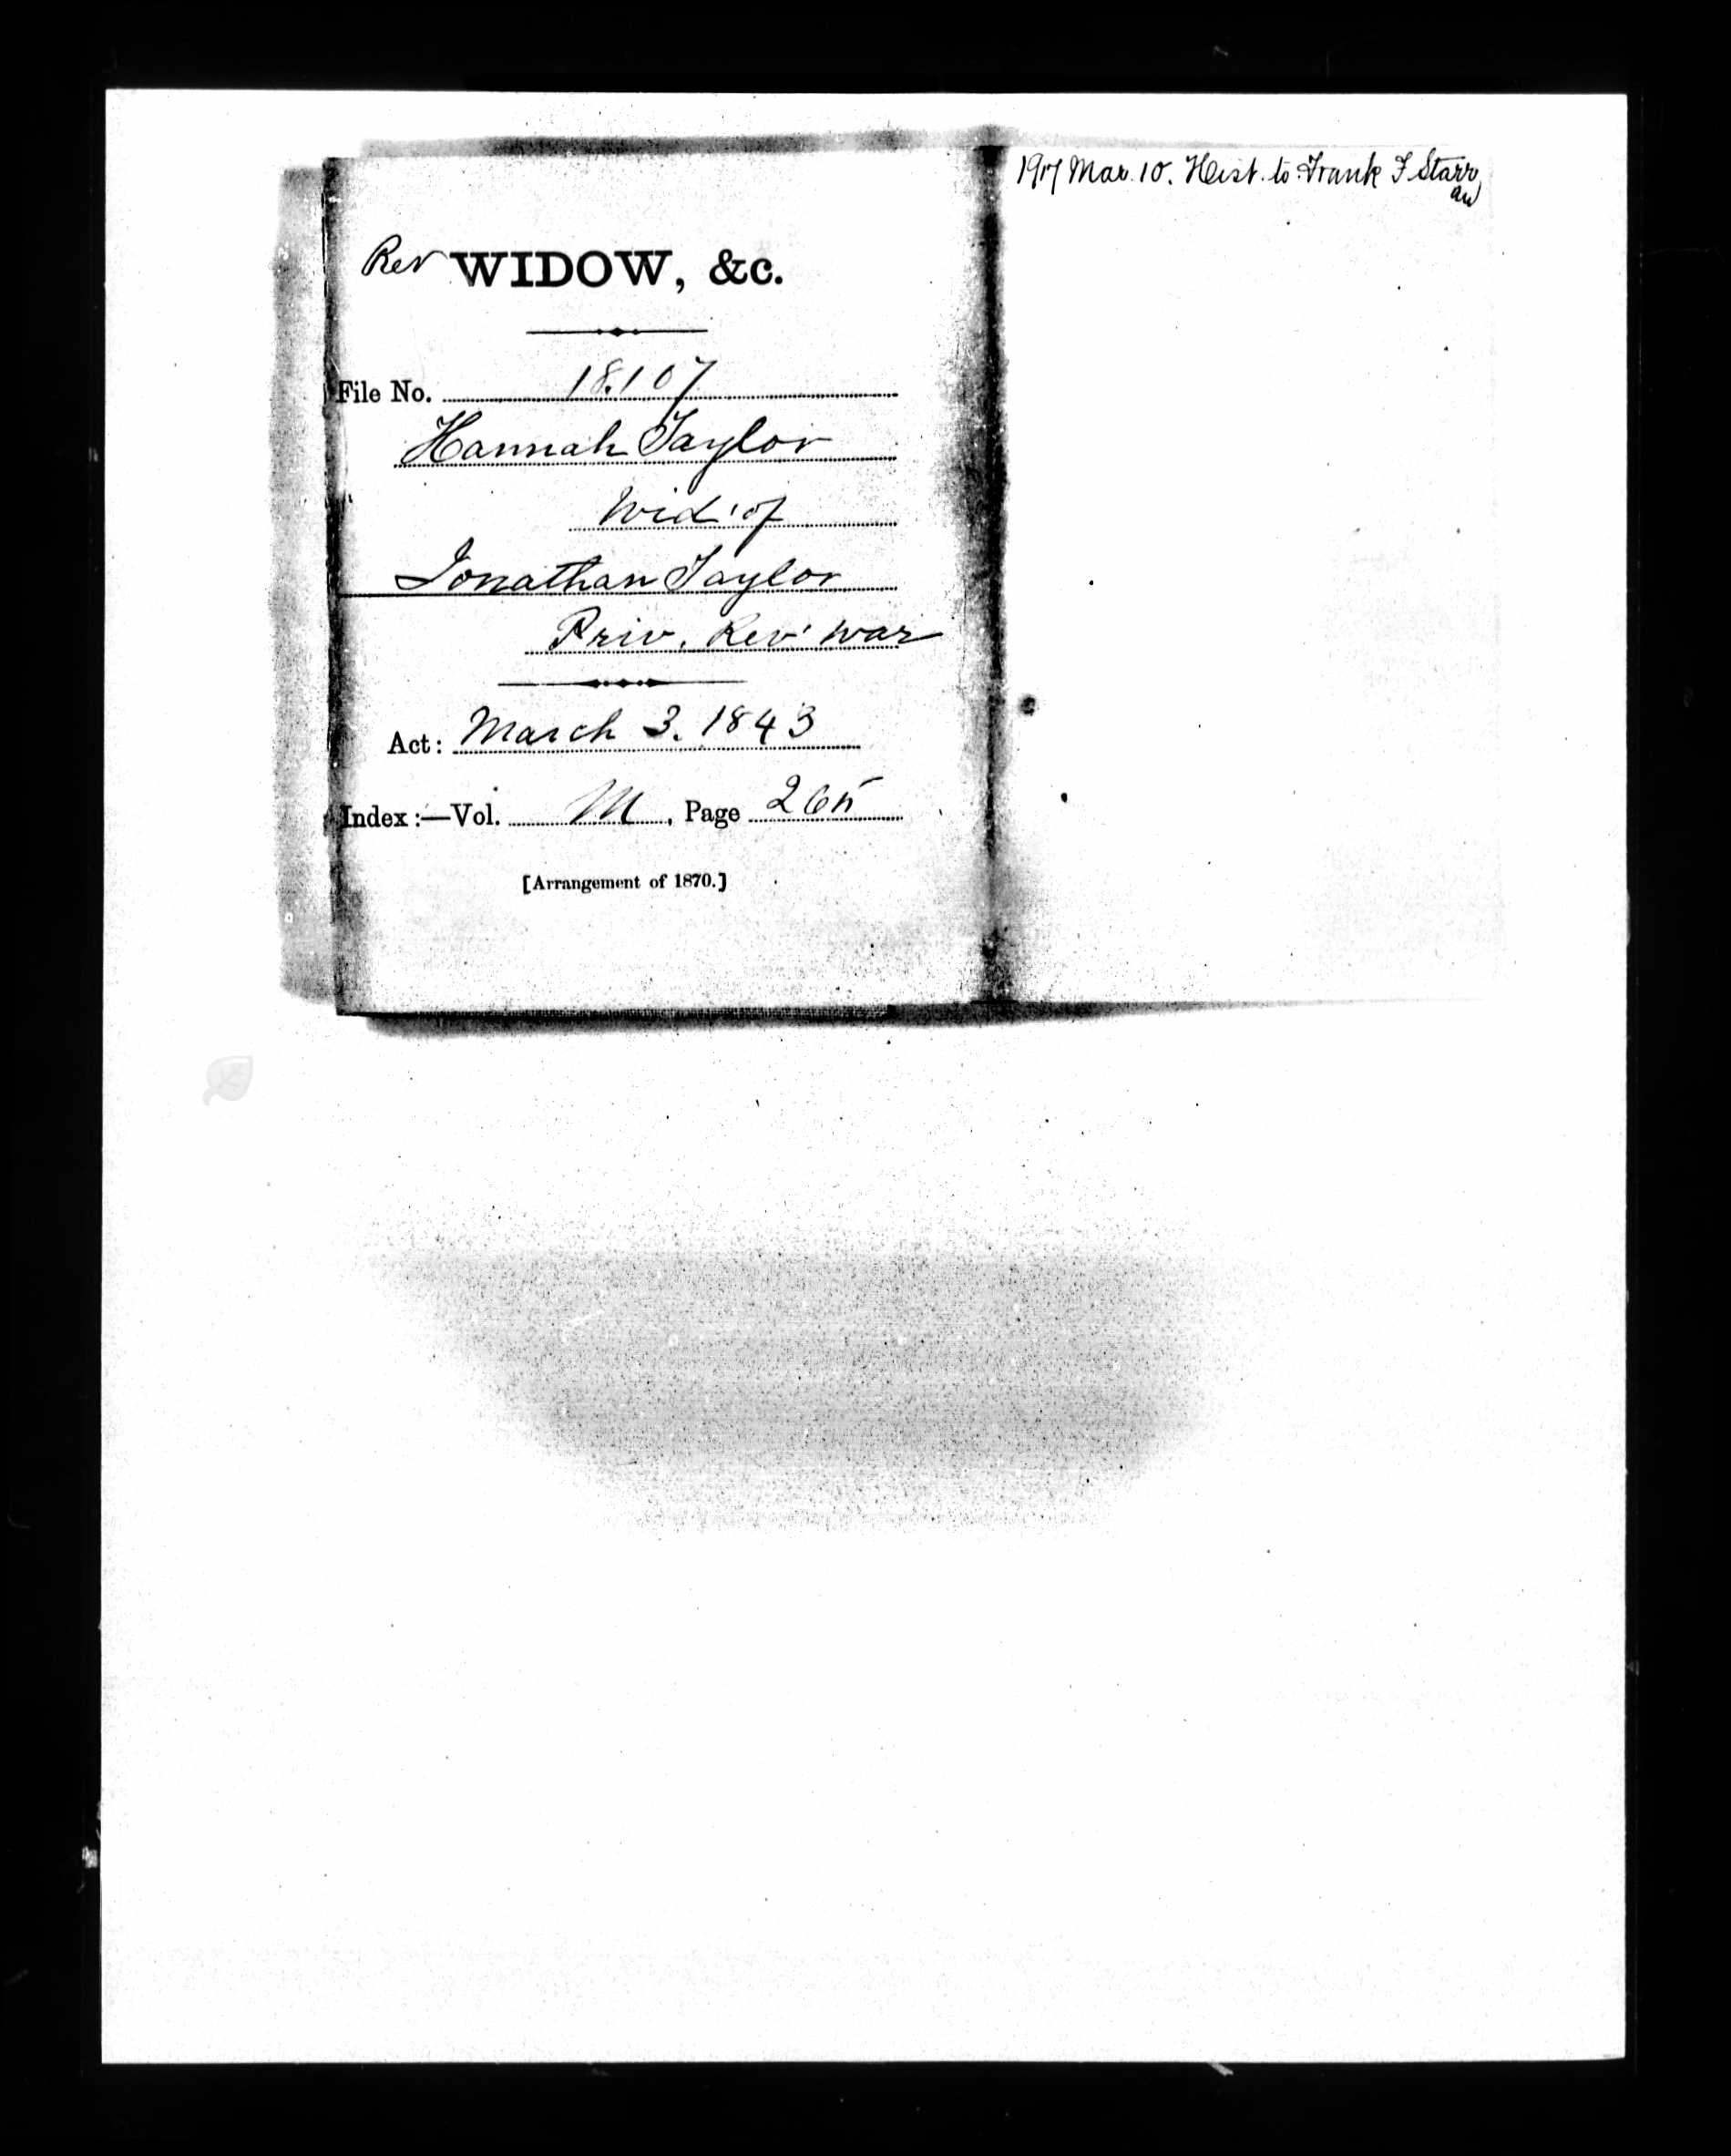 Rev WIDOW, &c.
File No. 18.107
Hannah Taylor
Wid' of
Jonathan Taylor
Priv. Rev' War
Act: March 3. 1843
Index:—Vol. M, Page 265
[Arrangement of 1870.]
Mar. 10. Hist. to Frank F Starr